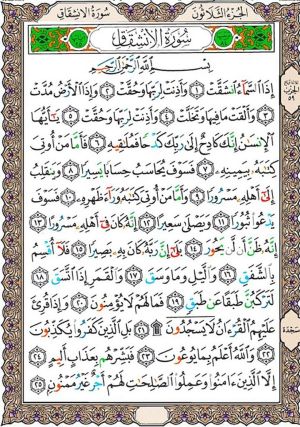 سُورَةُ الِانْشِقَاقِ الجُزْءُ الثَّلَاثُونَ
سُورَةُ الِانْشِقَاقِ
بِسْمِ اللَّهِ الرَّحْمَٰنِ الرَّحِيمِ
إِذَا السَّمَاءُ انشَقَّتْ ١ وَأَذِنَتْ لِرَبِّهَا وَحُقَّتْ ٢ وَإِذَا الْأَرْضُ مُدَّتْ
٣ وَأَلْقَتْ مَا فِيهَا وَتَخَلَّتْ ٤ وَأَذِنَتْ لِرَبِّهَا وَحُقَّتْ ٥ يَا أَيُّهَا
الْإِنسَٰنُ إِنَّكَ كَادِحٌ إِلَىٰ رَبِّكَ كَدْحًا فَمُلَٰقِيهِ ٦ فَأَمَّا مَنْ أُوتِيَ
كِتَٰبَهُ بِيَمِينِهِ ٧ فَسَوْفَ يُحَاسَبُ حِسَابًا يَسِيرًا ٨ وَيَنقَلِبُ
إِلَىٰ أَهْلِهِ مَسْرُورًا ٩ وَأَمَّا مَنْ أُوتِيَ كِتَٰبَهُ وَرَاءَ ظَهْرِهِ ١٠ فَسَوْفَ
يَدْعُوا ثُبُورًا ١١ وَيَصْلَىٰ سَعِيرًا ١٢ إِنَّهُ كَانَ فِي أَهْلِهِ مَسْرُورًا ١٣
إِنَّهُ ظَنَّ أَن لَّن يَحُورَ ١٤ بَلَىٰ إِنَّ رَبَّهُ كَانَ بِهِ بَصِيرًا ١٥ فَلَا أُقْسِمُ
بِالشَّفَقِ ١٦ وَالَّيْلِ وَمَا وَسَقَ ١٧ وَالْقَمَرِ إِذَا اتَّسَقَ ١٨
لَتَرْكَبُنَّ طَبَقًا عَن طَبَقٍ ١٩ فَمَا لَهُمْ لَا يُؤْمِنُونَ ٢٠ وَإِذَا قُرِئَ
عَلَيْهِمُ الْقُرْءَانُ لَا يَسْجُدُونَ ۩ ٢١ بَلِ الَّذِينَ كَفَرُوا يُكَذِّبُونَ
٢٢ وَاللَّهُ أَعْلَمُ بِمَا يُوعُونَ ٢٣ فَبَشِّرْهُم بِعَذَابٍ أَلِيمٍ ٢٤
إِلَّا الَّذِينَ ءَامَنُوا وَعَمِلُوا الصَّٰلِحَٰتِ لَهُمْ أَجْرٌ غَيْرُ مَمْنُونٍ ٢٥
الحزب
٥٩
سَجْدَة